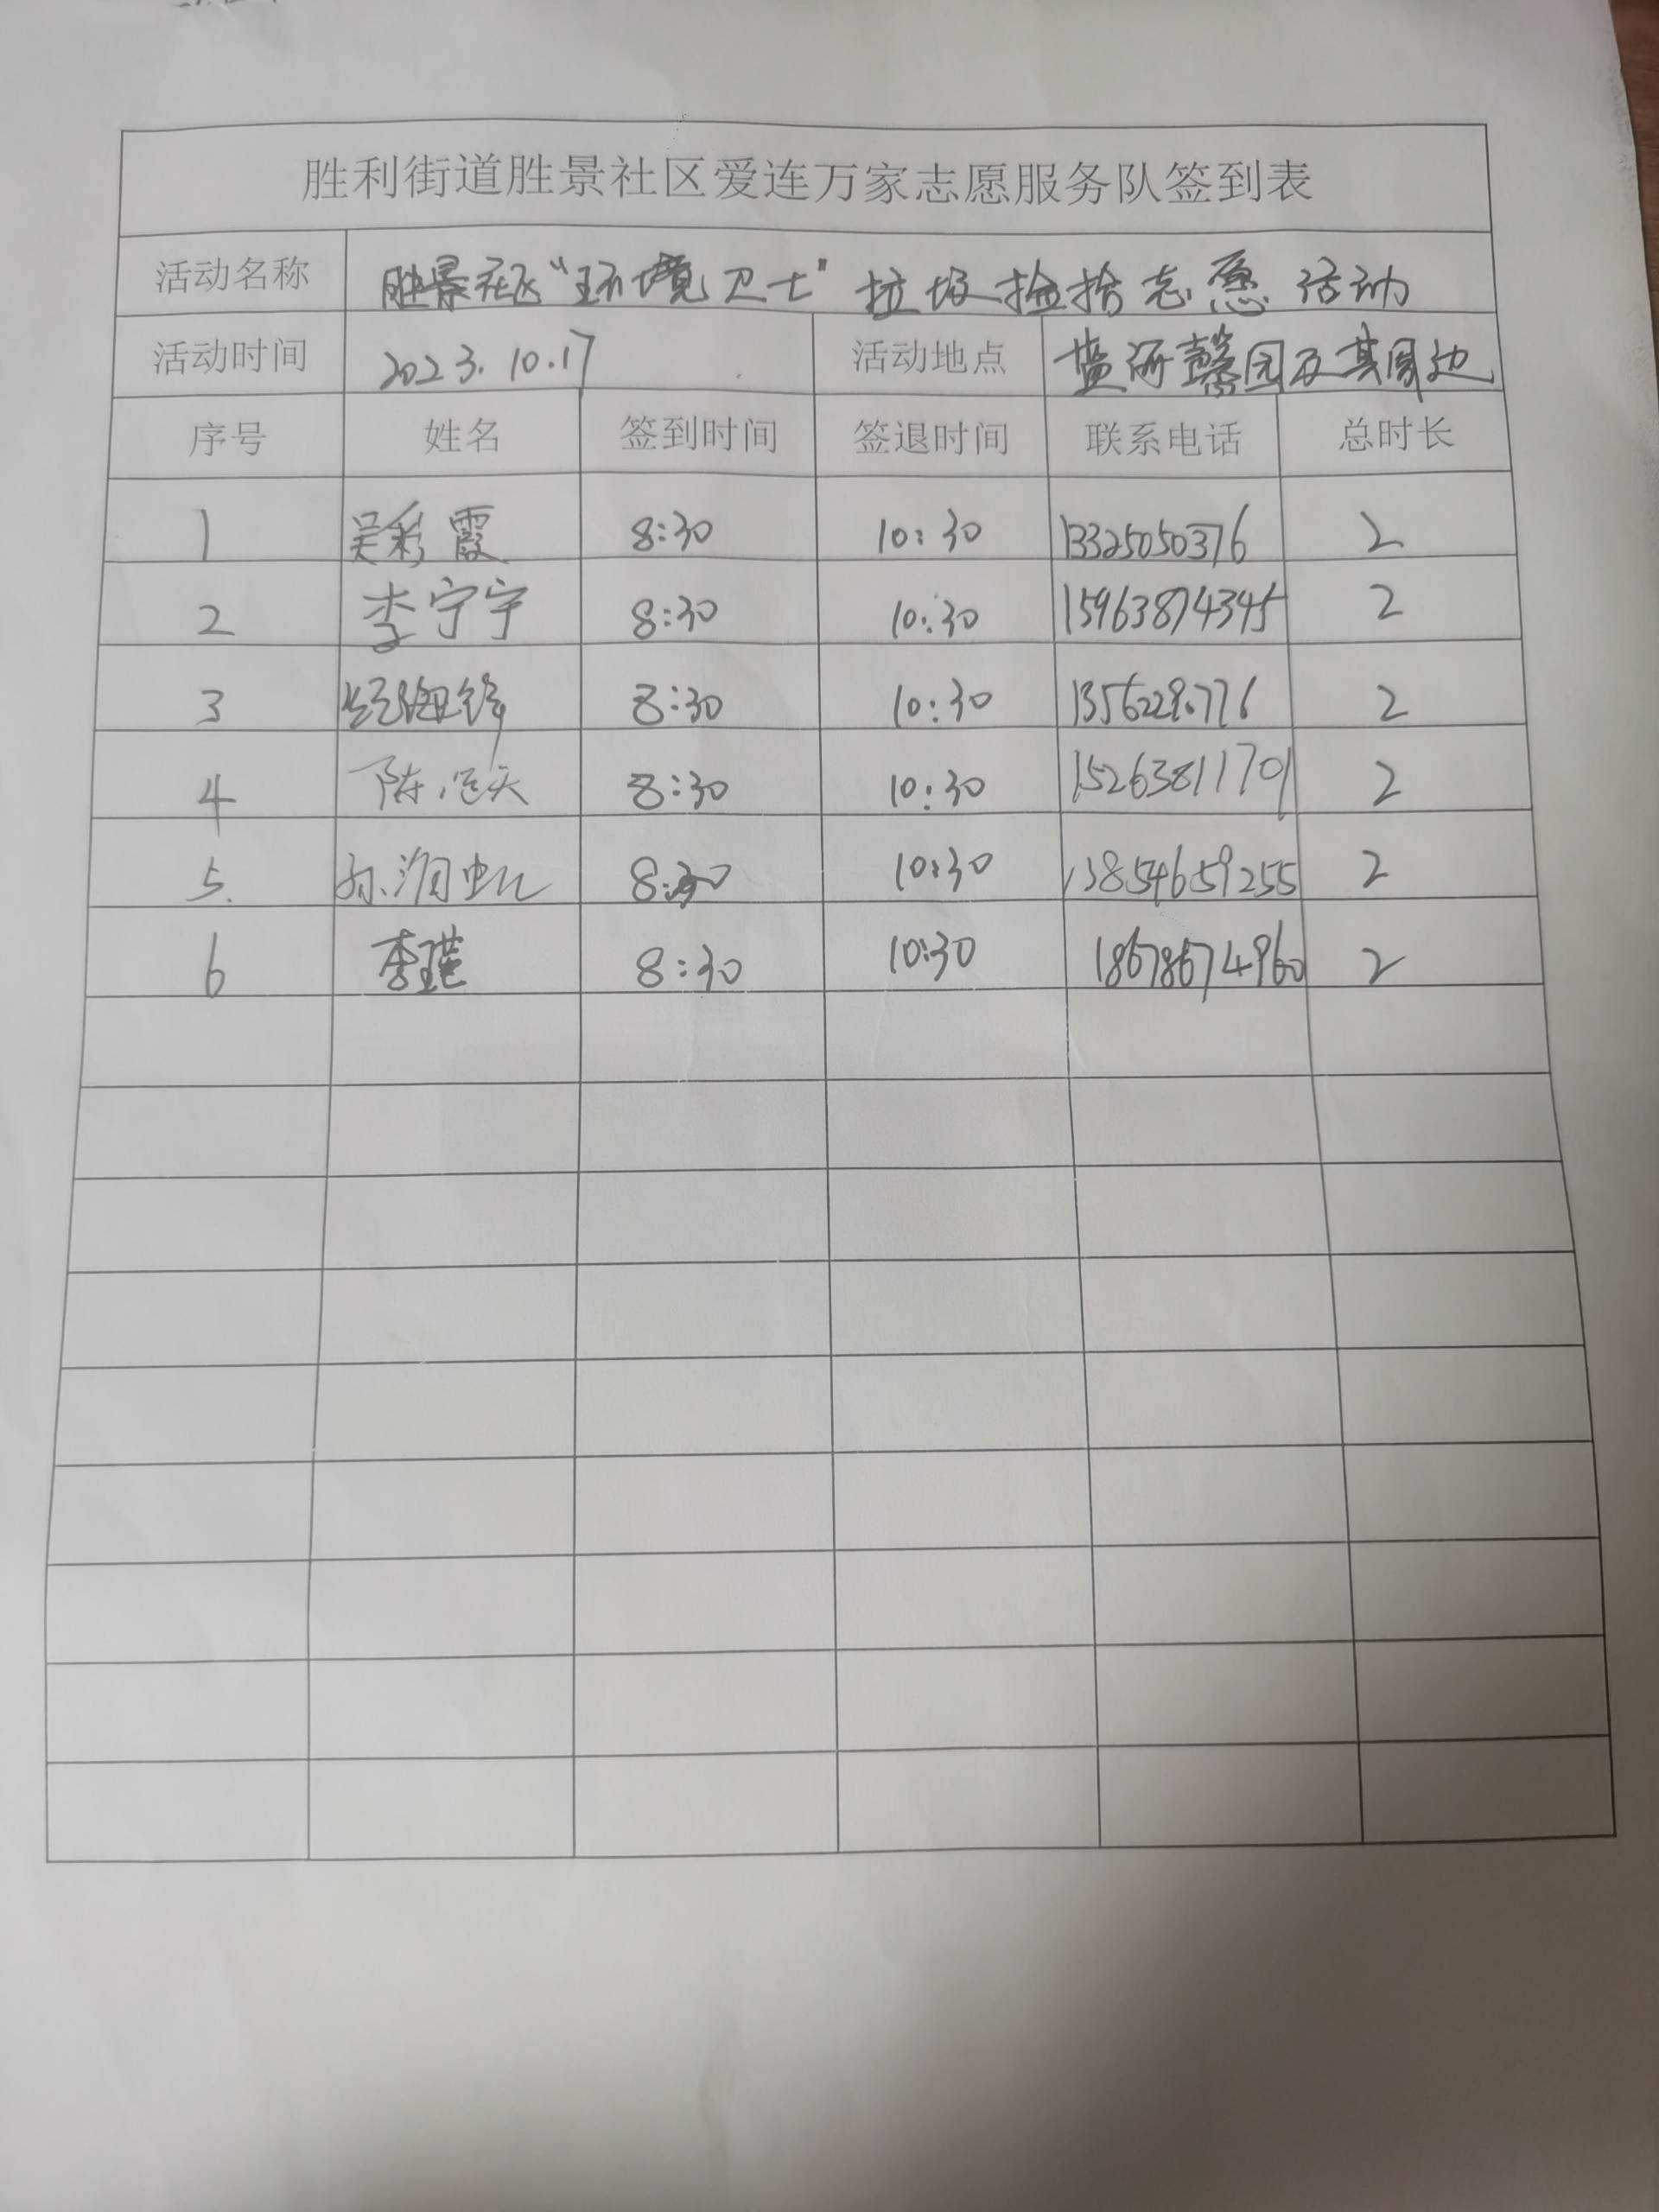 胜利街道胜景社区爱连万家志愿服务队签到表
活动名称 胜景社区“环境卫士”垃圾捡拾志愿活动
活动时间 2023.10.17 活动地点 盐研馨园及其周边
序号 姓名 签到时间 签退时间 联系电话 总时长
1 吴彩霞 8:30 10:30 13325050376 2
2 李宁宇 8:30 10:30 15963874345 2
3 8:30 10:30 2
4 8:30 10:30 15263811701 2
5. 8:30 10:30 13854659255 2
6 李瑾 8:30 10:30 18678674960 2